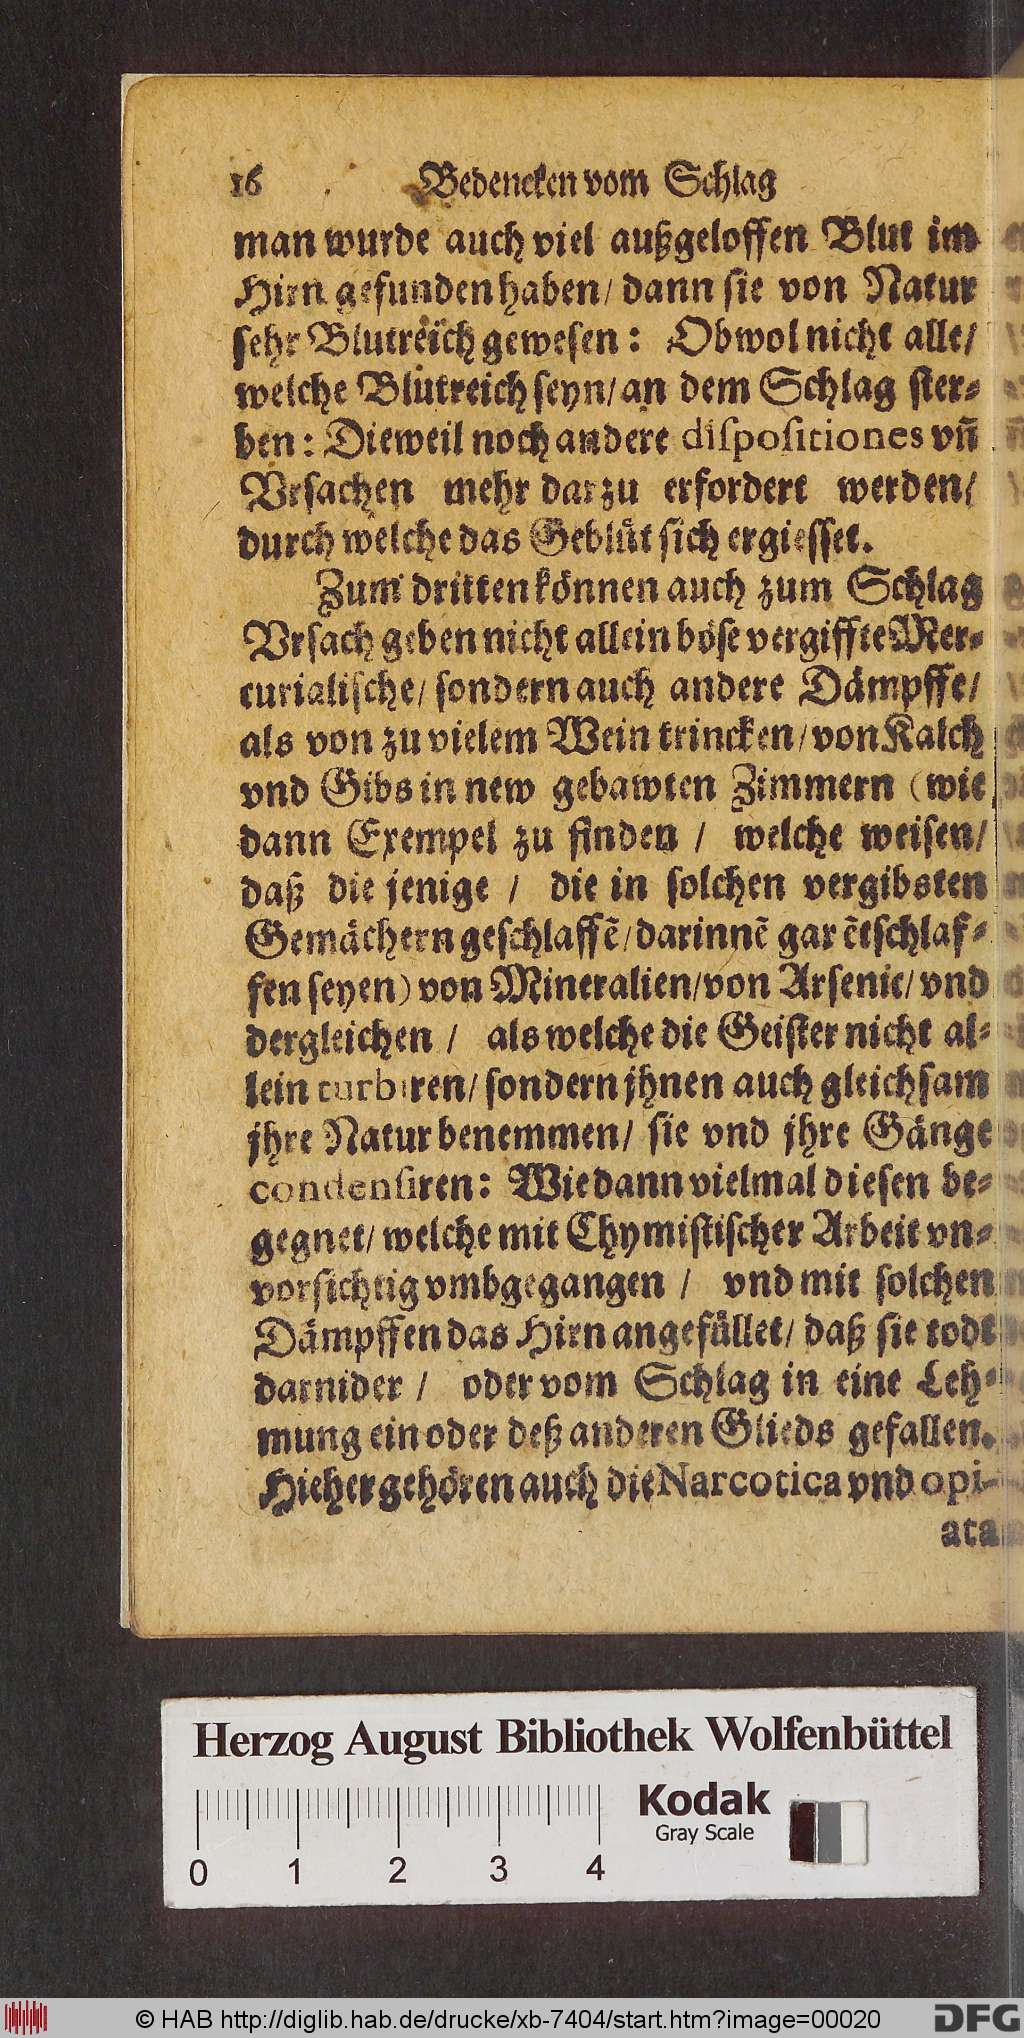 16 Bedencken vom Schlag
man wurde auch viel außgeloffen Blut im
Hirn gefunden haben / dann sie von Natur
sehr Blutreich gewesen: Obwol nicht alle /
welche Blutreich seyn / an dem Schlag ster-
ben: Dieweil noch andere dispositiones vñ
Vrsachen mehr darzu erfordert werden /
durch welche das Geblüt sich ergiesset.
Zum dritten können auch zum Schlag
Vrsach geben nicht allein böse vergiffte Mer-
curialische / sondern auch andere Dämpffe /
als von zu vielem Wein trincken / von Kalch
vnd Gibs in new gebawten Zimmern (wie
dann Exempel zu finden / welche weisen /
daß die jenige / die in solchen vergibsten
Gemächern geschlaffẽ / darinnẽ gar ẽtschlaf-
fen seyen) von Mineralien / von Arsenic / vnd
dergleichen / als welche die Geister nicht al-
lein turbiren / sondern jhnen auch gleichsam
jhre Natur benemmen / sie vnd jhre Gänge
condensiren: Wie dann vielmal diesen be-
gegnet / welche mit Chymistischer Arbeit vn-
vorsichtig vmbgegangen / vnd mit solchen
Dämpffen das Hirn angefüllet / daß sie todt
darnider / oder vom Schlag in eine Leh-
mung ein oder deß anderen Glieds gefallen.
Hieher gehören auch die Narcotica vnd opi-
ata
Herzog August Bibliothek Wolfenbüttel
Kodak
Gray Scale
0 1 2 3 4
© HAB http://diglib.hab.de/drucke/xb-7404/start.htm?image=00020
DFG